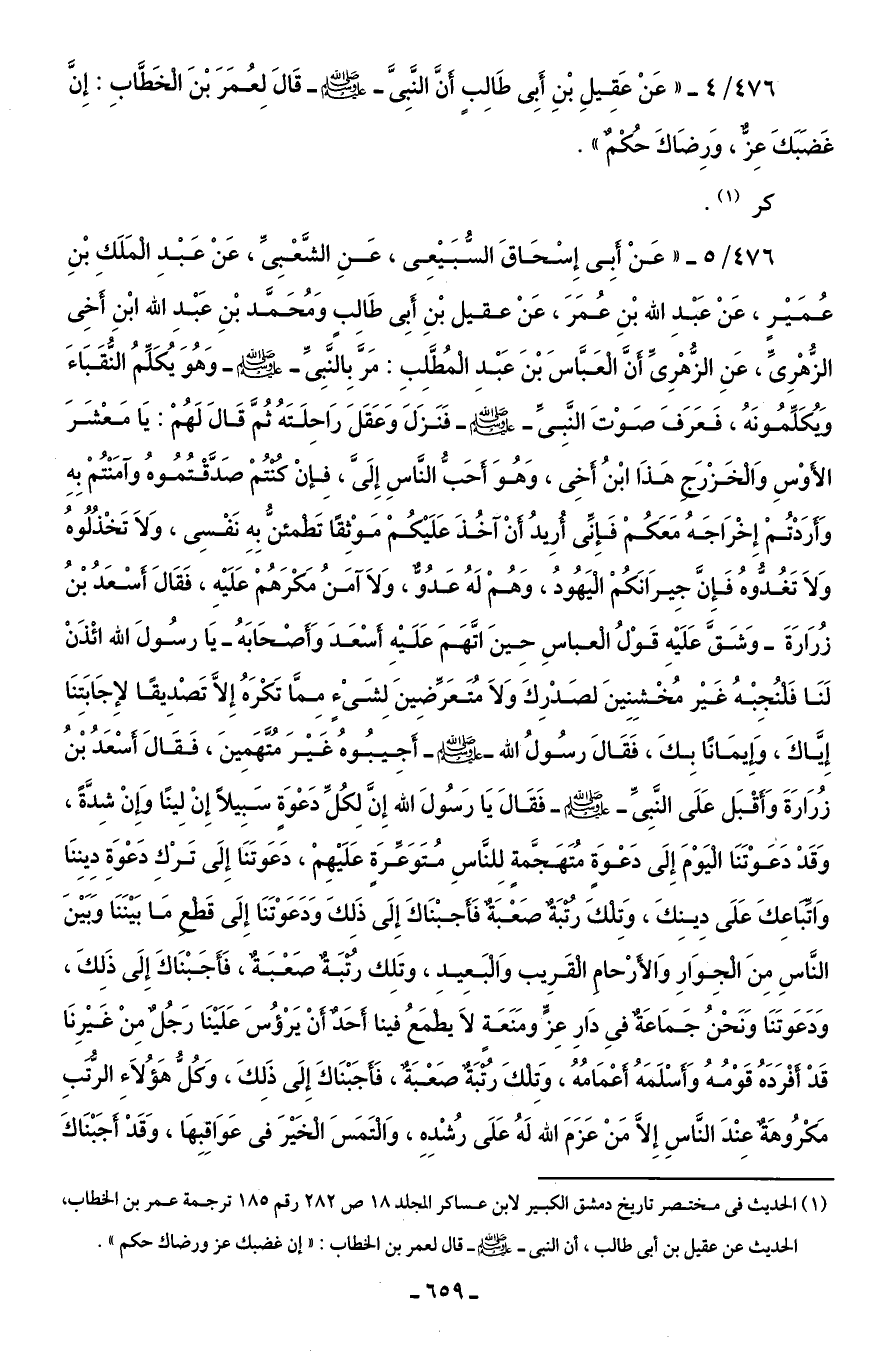 ٤/٤٧٦ ـ « عَنْ عَقِيلِ بْنِ أَبِى طَالِبٍ أَنَّ النَّبِىَّ ـ ﷺ ـ قَالَ لِعُمَرَ بْنَ الْخَطَّابِ : إِنَّ
غَضَبَكَ عِزٌّ ، وَرِضَاكَ حُكْمٌ » .
كر (١) .
٥/٤٧٦ ـ « عَنْ أَبِى إِسْحَاقَ السُّبَيْعِى ، عَنِ الشَّعْبِىِّ ، عَنْ عَبْدِ الْمَلَكِ بْنِ
عُمَيْرٍ ، عَنْ عَبْدِ الله بْنِ عُمَرَ ، عَنْ عَقِيلِ بْنِ أَبِى طَالِبٍ وَمُحَمَّدِ بْنِ عَبْدِ الله ابْنِ أَخِى
الزُّهْرِىِّ ، عَنِ الزُّهْرِىِّ أَنَّ الْعَبَّاسَ بْنَ عَبْدِ الْمُطَّلِبِ : مَرَّ بِالنَّبِىِّ ـ ﷺ ـ وَهُوَ يُكَلِّمُ النُّقَبَاءَ
وَيُكَلِّمُونَهُ ، فَعَرَفَ صَوْتَ النَّبِىِّ ـ ﷺ ـ فَنَزَلَ وَعَقَلَ رَاحِلَتَهُ ثُمَّ قَالَ لَهُمْ : يَا مَعْشَرَ
الأَوْسِ وَالْخَزْرَجِ هَذَا ابْنُ أَخِى ، وَهُوَ أَحَبُّ النَّاسِ إِلَىَّ ، فَإِنْ كُنْتُمْ صَدَّقْتُمُوهُ وآمَنْتُمْ بِهِ
وَأَرَدْتُمْ إِخْرَاجَهُ مَعَكُمْ فَإِنِّى أُرِيدُ أَنْ آخُذَ عَلَيْكُمْ مَوْثِقًا تَطْمَئِنُّ بِهِ نَفْسِى ، وَلاَ تَخْذُلُوهُ
وَلاَ تَغُدُّوهُ فَإِنَّ جِيرَانَكُمْ الْيَهُودُ ، وَهُمْ لَهُ عَدُوٌّ ، وَلاَ آمَنُ مَكْرَهُمْ عَلَيْهِ ، فَقَالَ أَسْعَدُ بْنُ
زُرَارَةَ ـ وَشَقَّ عَلَيْهِ قَوْلُ الْعباسِ حِينَ اتَّهَمَ عَلَيْهِ أَسْعَدَ وَأَصْحَابَهُ ـ يَا رسُولَ الله ائْذَنْ
لَنَا فَلْنُجِبْهُ غَيْرِ مُخْشِنِينَ لِصَدْرِكَ وَلاَ مُتَعَرِّضِينَ لِشَىْءٍ مِمَّا تَكْرَهُ إِلاَّ تَصْدِيقًا لإِجَابَتِنَا
إِيَّاكَ ، وَإِيمَانًا بِكَ ، فَقَالَ رسُولُ الله ـ ﷺ ـ أَجِيبُوهُ غَيْرَ مُتَّهَمِينَ ، فَقَالَ أَسْعَدُ بْنُ
زُرَارَةَ وَأَقْبَلَ عَلَى النَّبِىِّ ـ ﷺ ـ فَقَالَ يَا رَسُولَ الله إِنَّ لِكُلِّ دَعْوَةٍ سَبِيلاً إِنْ لِينًا وَإِنْ شِدَّةً ،
وَقَدْ دَعَوْتَنَا الْيَوْمَ إِلَى دَعْوَةٍ مُتَهَجِّمَةٍ لِلنَّاسِ مُتَوَعِّرَةٍ عَلَيْهِمْ ، دَعَوْتَنَا إِلَى تَرْكِ دَعْوَةِ دِينِنَا
وَاتِّبَاعِكَ عَلَى دِينِكَ ، وَتِلْكَ رُتْبَةٌ صَعْبَةٌ فَأَجِبْنَاكَ إِلَى ذَلِكَ وَدَعَوْتَنَا إِلَى قَطْعِ مَا بَيْنَنَا وَبَيْنَ
النَّاسِ مِنَ الْجِوَارِ وَالأَرْحَامِ الْقَرِيبِ وَالْبَعِيدِ ، وَتِلك رُتْبَةٌ صَعْبَةٌ ، فَأَجَبْنَاكَ إِلَى ذَلِكَ ،
وَدَعَوتَنَا وَنَحْنُ جَمَاعَةٌ فِى دَارِ عِزٍّ ومَنَعَةٍ لاَ يطمَعُ فينا أَحَدٌ أَنْ يَرْؤُسَ عَلَيْنَا رَجُلٌ مِنْ غَيْرِنَا
قَدْ أَفْرَدَهُ قَوْمُهُ وَأَسْلَمَهُ أَعْمَامُهُ ، وَتِلْكَ رُتْبَةٌ صَعْبَةٌ ، فَأَجَبْنَاكَ إِلَى ذَلِكَ ، وَكُلُّ هَؤُلاَءِ الرُّتَبِ
مَكْرُوهَةٌ عِنْدَ النَّاسِ إِلاَّ مَنْ عَزَمَ الله لَهُ عَلَى رُشْدِهِ ، وَالْتَمَسَ الْخَيْرَ فِى عَوَاقِبِهَا ، وَقَدْ أَجَبْنَاكَ
(١) الحديث فى مختصر تاريخ دمشق الكبير لابن عساكر المجلد ١٨ ص ٢٨٢ رقم ١٨٥ ترجمة عمر بن الخطاب،
الحديث عن عقيل بن أبى طالب ، أن النبى ـ ﷺ ـ قال لعمر بن الخطاب : « إن غضبك عز ورضاك حكم » .
ـ ٦٥٩ ـ